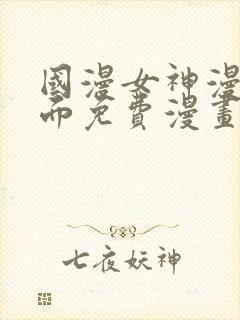 國漫女神漫
而免費漫畫
七夜妖神